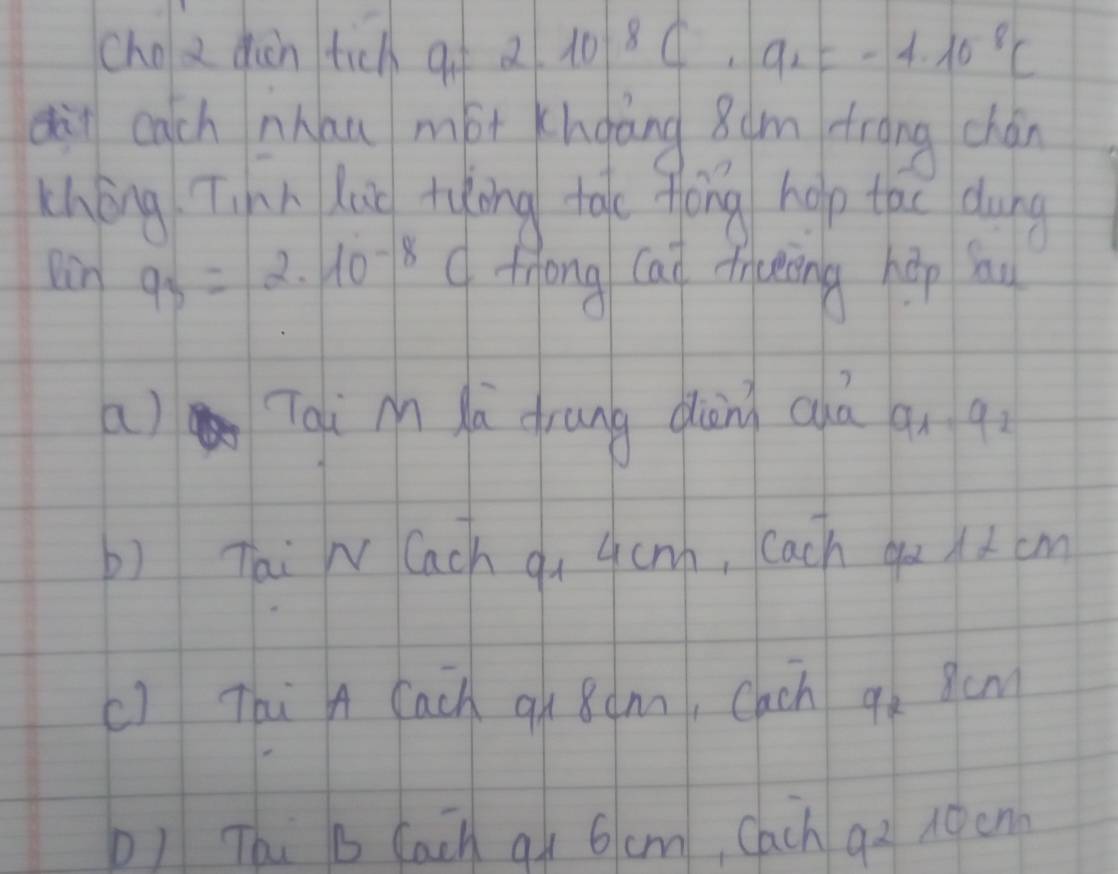 Cho 2 điện tích q1 = 2.10⁻⁸ C, q2 = -1.10⁻⁸C
đặt cách nhau một khoảng 8cm trong chân
không. Tính lực tương tác tổng hợp tác dụng
lên q3 = 2.10⁻⁸ C trong các trường hợp sau
a) Tại M là trung điểm của q1 q2
b) Tại N cách q1 4cm, cách q2 12 cm
c) Tại A cách q1 8cm, cách q2 8cm
D) Tại B cách q1 6cm, cách q2 10cm